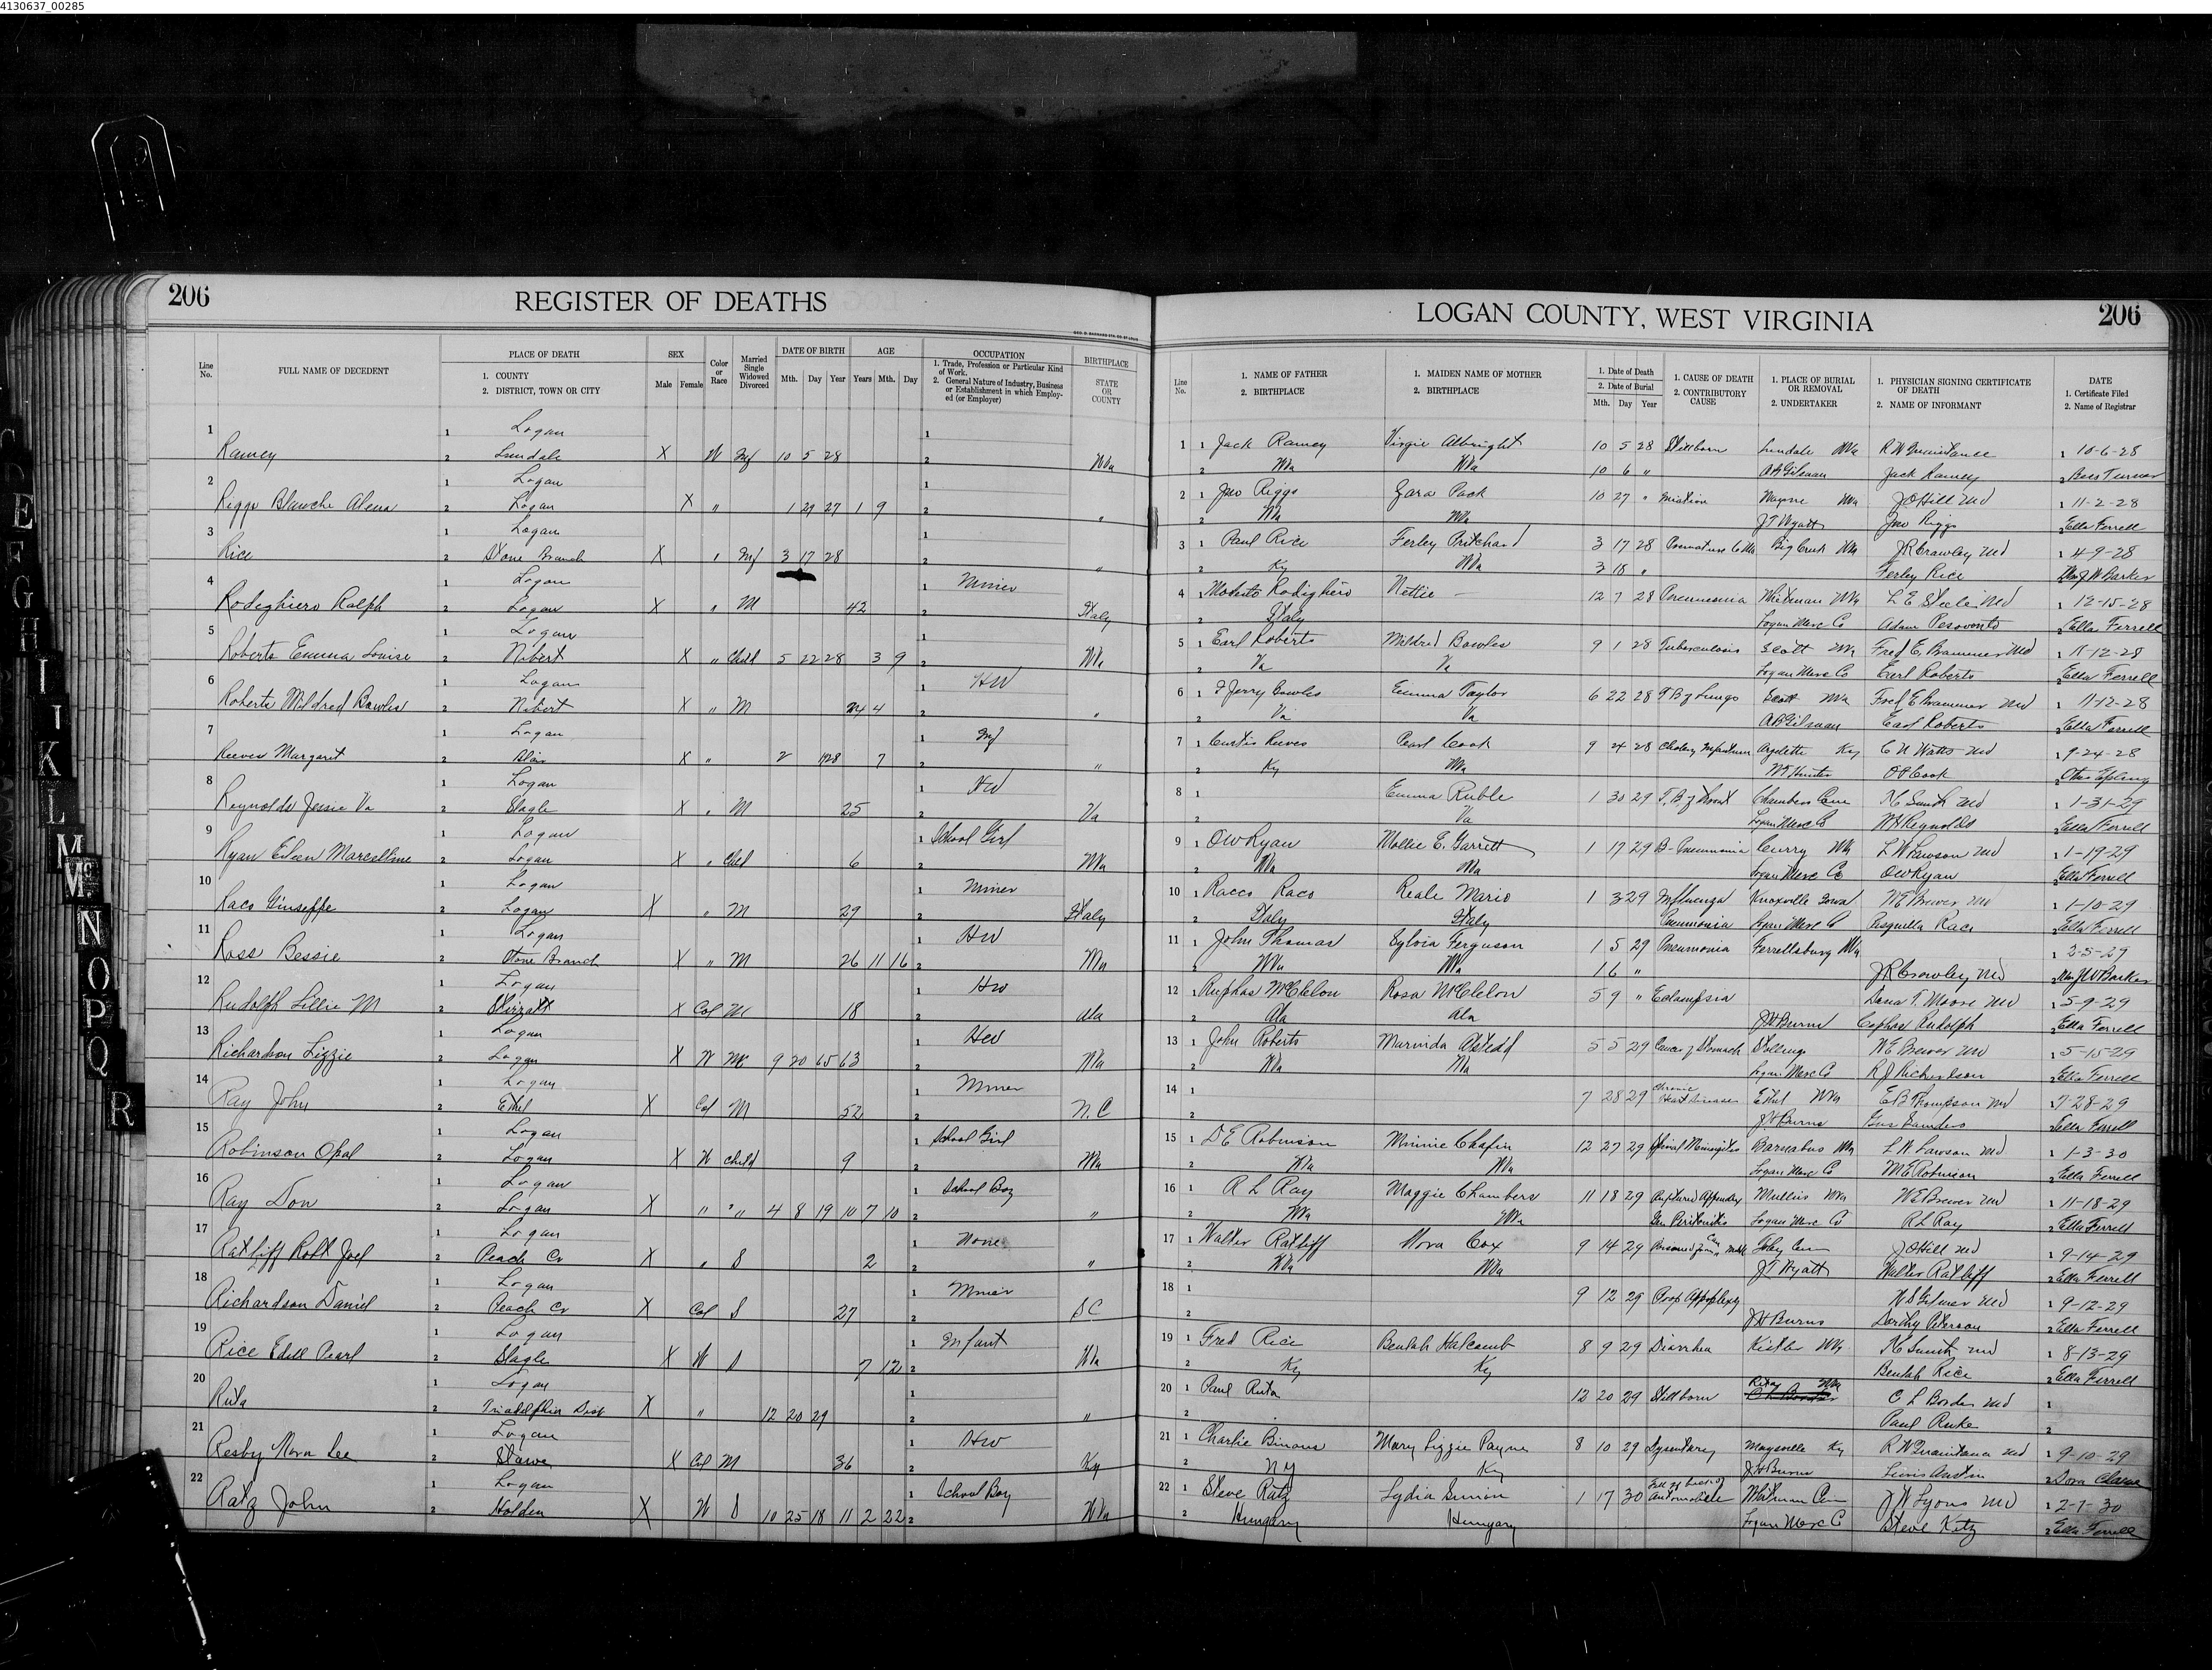 4130637_00285
206 REGISTER OF DEATHS
LOGAN COUNTY, WEST VIRGINIA 206
Line No. FULL NAME OF DECEDENT PLACE OF DEATH 1. COUNTY 2. DISTRICT, TOWN OR CITY SEX Male Female Color or Race Married Single Widowed Divorced DATE OF BIRTH Mth. Day Year AGE Years Mth. Day OCCUPATION 1. Trade, Profession or Particular Kind of Work. 2. General Nature of Industry, Business or Establishment in which Employed (or Employer) BIRTHPLACE STATE OR COUNTY
Line No. 1. NAME OF FATHER 2. BIRTHPLACE 1. MAIDEN NAME OF MOTHER 2. BIRTHPLACE 1. Date of Death 2. Date of Burial Mth. Day Year 1. CAUSE OF DEATH 2. CONTRIBUTORY CAUSE 1. PLACE OF BURIAL OR REMOVAL 2. UNDERTAKER 1. PHYSICIAN SIGNING CERTIFICATE OF DEATH 2. NAME OF INFORMANT DATE 1. Certificate Filed 2. Name of Registrar
1 1 Logan 1
Ramey 2 Lundale X W Inf 10 5 28 2 WVa
2 1 Logan 1
Riggs Blanche Alena 2 Logan X " 1 29 27 1 9 2 "
3 1 Logan 1
Rice 2 Stone Branch X " Inf 3 17 28 2 "
4 1 Logan 1 Miner
Rodighiero Ralph 2 Logan X " M 42 2 Italy
5 1 Logan 1
Roberts Emma Louise 2 Nibert X " Child 5 22 28 3 9 2 WVa
6 1 Logan 1 HW
Roberts Mildred Bowles 2 Nibert X " M 24 4 2 "
7 1 Logan 1 Inf
Reeves Margaret 2 Blair X " 2 1928 7 2 "
8 1 Logan 1 HW
Reynolds Jessie Va 2 Slagle X " M 25 2 Va
9 1 Logan 1 School Girl
Ryan Eileen Marcelline 2 Logan X " Child 6 2 WVa
10 1 Logan 1 Miner
Raco Giuseppe 2 Logan X " M 29 2 Italy
11 1 Logan 1 HW
Ross Bessie 2 Stone Branch X " M 26 11 16 2 WVa
12 1 Logan 1 HW
Rudolph Lillie M 2 Stirratt X Col M 18 2 Ala
13 1 Logan 1 HW
Richardson Lizzie 2 Logan X W M 9 20 65 63 2 WVa
14 1 Logan 1 Miner
Ray John 2 Ethel X Col M 52 2 N.C
15 1 Logan 1 School Girl
Robinson Opal 2 Logan X W Child 9 2 WVa
16 1 Logan 1 School Boy
Ray Don 2 Logan X " " 4 8 19 10 7 10 2 "
17 1 Logan 1 None
Ratliff Robt Joel 2 Peach Cr X " S 2 2 "
18 1 Logan 1 Miner
Richardson Daniel 2 Peach Cr X Col S 27 2 SC
19 1 Logan 1 Infant
Rice Edell Pearl 2 Slagle X W S 7 12 2 WVa
20 1 Logan 1
Ruta 2 Triadelphia Dist X " 12 20 29 2 "
21 1 Logan 1 HW
Resby Nora Lee 2 Stowe X Col M 36 2 Ky
22 1 Logan 1 School Boy
Ratz John 2 Holden X W S 10 25 18 11 2 22 2 WVa
1 1 Jack Ramey Virgie Albright 10 5 28 Stillborn Lundale WVa R W Quaintance 1 10-6-28
2 WVa WVa 10 6 " A B Gilman Jack Ramey 2 Bess Turner
2 1 Jno Riggs Zara Pack 10 27 " Wayne WVa J O Hill MD 1 11-2-28
2 WVa WVa J T Wyatt Jno Riggs 2 Ella Ferrell
3 1 Paul Rice Ferley Pritchard 3 17 28 Premature Big Creek WVa J R Crawley MD 1 4-9-28
2 Ky WVa 3 18 " Ferley Rice Mrs J W Barker
4 1 Modesto Rodighiero Nettie — 12 7 28 Pneumonia Whitman WVa L E Steele MD 1 12-15-28
2 Italy Logan Merc Co Adam Pesavento 2 Ella Ferrell
5 1 Earl Roberts Mildred Bowles 9 1 28 Tuberculosis Scott WVa Fred E. Brammer MD 1 11-12-28
2 Va Va Logan Merc Co Earl Roberts 2 Ella Ferrell
6 1 Jerry Bowles Emma Taylor 6 22 28 T B of Lungs Scott WVa Fred E Brammer MD 1 11-12-28
2 Va Va A B Gilman Earl Roberts 2 Ella Ferrell
7 1 Curtis Reeves Pearl Cook 9 24 28 Cholera Infantum Ky C N Watts MD 1 9-24-28
2 Ky WVa W F Hunter O P Cook
8 1 Emma Ruble 1 30 29 T.B. of Throat Chambers Cem H C Smith MD 1 1-31-29
2 Va Logan Merc Co Reynolds 2 Ella Ferrell
9 1 O W Ryan Mollie E. Garrett 1 17 29 B-Pneumonia Curry WVa L W Lawson MD 1 1-19-29
2 WVa WVa Logan Merc Co O W Ryan 2 Ella Ferrell
10 1 Racco Raco Reale Mario 1 3 29 Influenza Knoxville Iowa W E Brewer MD 1 1-10-29
2 Italy Italy Pneumonia Logan Merc Co Pasquella Raco 2 Ella Ferrell
11 1 John Thomas Sylvia Ferguson 1 5 29 Pneumonia Ferrellsburg WVa 1 2-5-29
2 WVa WVa 1 6 " J R Crowley MD Mrs J W Barker
12 1 Ruphas McClelon Rosa McClelon 5 9 " Eclampsia Dana T. Moore MD 1 5-9-29
2 Ala Ala J H Burns Cephas Rudolph 2 Ella Ferrell
13 1 John Roberts Marinda 5 5 29 Cancer of Stomach Stollings W E Brewer MD 1 5-15-29
2 WVa WVa Logan Merc Co R J Richardson 2 Ella Ferrell
14 1 7 28 29 Chronic Heart Diseases Ethel WVa E B Thompson MD 1 7-28-29
2 J H Burns Gus Sanders 2 Ella Ferrell
15 1 D E Robinson Minnie Chafin 12 27 29 Spinal Meningitis Barnabus WVa L W Lawson MD 1 1-3-30
2 WVa WVa Logan Merc Co M E Robinson 2 Ella Ferrell
16 1 R L Ray Maggie Chambers 11 18 29 Ruptured Appendix Mullins WVa W E Brewer MD 1 11-18-29
2 WVa WVa Gen Peritonitis Logan Merc Co R L Ray 2 Ella Ferrell
17 1 Walter Ratliff Nora Cox 9 14 29 J O Hill MD 1 9-14-29
2 WVa WVa J T Wyatt Walter Ratliff 2 Ella Ferrell
18 1 9 12 29 W S Gilmer MD 1 9-12-29
2 J H Burns Dorthy Peterson 2 Ella Ferrell
19 1 Fred Rice Beulah Halcomb 8 9 29 Diarrhea Kistler WVa H C Smith MD 1 8-13-29
2 Ky Ky Beulah Rice 2 Ella Ferrell
20 1 Paul Ruta 12 20 29 Stillborn Rita WVa C L Border MD 1
2 Paul Ruke 2
21 1 Charlie Binous Mary Lizzie Payne 8 10 29 Dysentary Maysville Ky R W Quaintance MD 1 9-10-29
2 NY Ky J H Burns Lewis Austin 2 Dora
22 1 Steve Ratz Lydia Simion 1 17 30 automobile Whitman Cem J W Lyons MD 1 2-7-30
2 Hungary Hungary Logan Merc C Steve Ketz 2 Ella Ferrell
C D E F G H I J K L M Mc N O P Q R